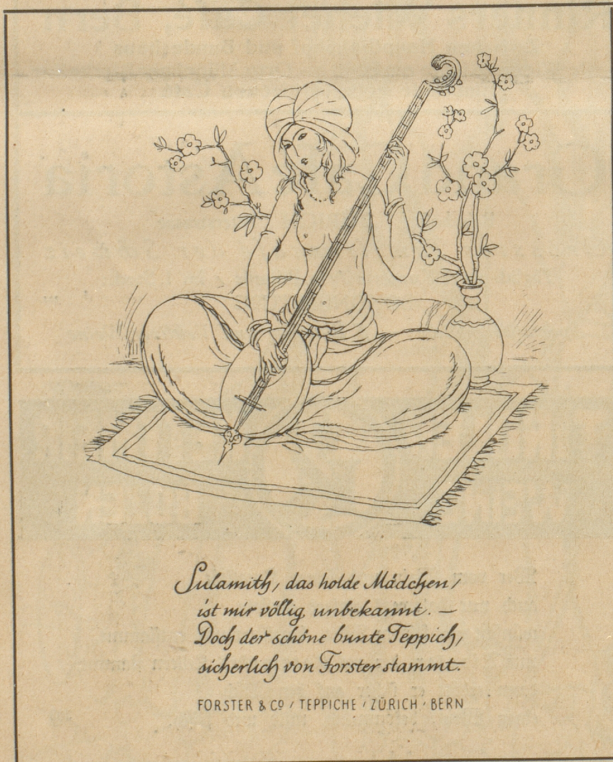 Sulamith, das holde Mädchen,
ist mir völlig unbekannt. –
Doch der schöne bunte Teppich,
sicherlich von Forster stammt.
FORSTER & CO / TEPPICHE / ZÜRICH / BERN